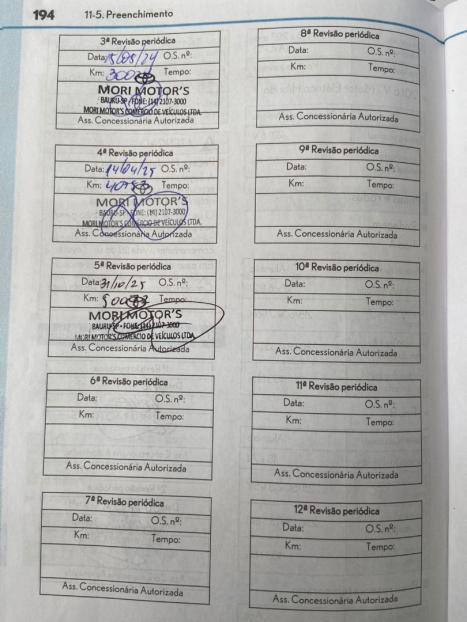 194 11-5. Preenchimento
3ª Revisão periódica
Data: 15/05/24 O.S. nº:
Km: Tempo:
MORI MOTOR'S
BAURU-SP - FONE: (14) 2107-3000
MORI MOTOR'S COMERCIO DE VEÍCULOS LTDA.
Ass. Concessionária Autorizada
4ª Revisão periódica
Data: 14/04/25 O.S. nº:
Km: Tempo:
MORI MOTOR'S
BAURU-SP - FONE: (14) 2107-3000
MORI MOTOR'S COMERCIO DE VEÍCULOS LTDA.
Ass. Concessionária Autorizada
5ª Revisão periódica
Data: 31/10/25 O.S. nº:
Km: Tempo:
MORI MOTOR'S
BAURU-SP - FONE: (14) 2107-3000
MORI MOTOR'S COMERCIO DE VEÍCULOS LTDA.
Ass. Concessionária Autorizada
6ª Revisão periódica
Data: O.S. nº:
Km: Tempo:
Ass. Concessionária Autorizada
7ª Revisão periódica
Data: O.S. nº:
Km: Tempo:
Ass. Concessionária Autorizada
8ª Revisão periódica
Data: O.S. nº:
Km: Tempo:
Ass. Concessionária Autorizada
9ª Revisão periódica
Data: O.S. nº:
Km: Tempo:
Ass. Concessionária Autorizada
10ª Revisão periódica
Data: O.S. nº:
Km: Tempo:
Ass. Concessionária Autorizada
11ª Revisão periódica
Data: O.S. nº:
Km: Tempo:
Ass. Concessionária Autorizada
12ª Revisão periódica
Data: O.S. nº:
Km: Tempo:
Ass. Concessionária Autorizada